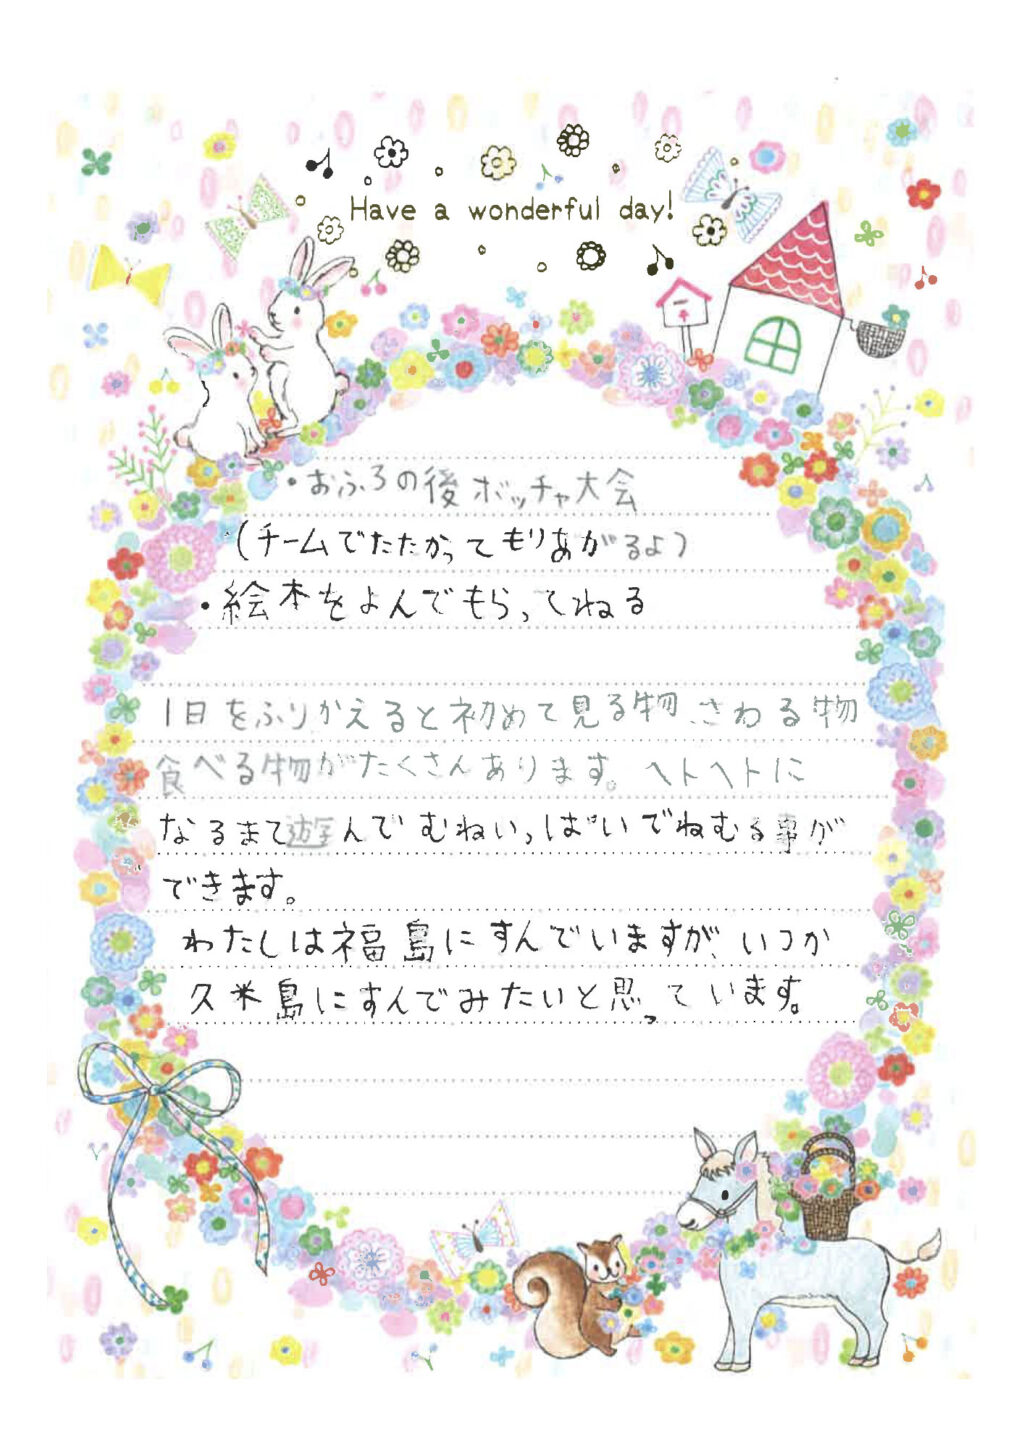 Have a wonderful day!
・おふろの後ボッチャ大会
(チームでたたかってもりあがるよ)
・絵本をよんでもらってねる
1日をふりかえると初めて見る物、さわる物
食べる物がたくさんあります。ヘトヘトに
なるまで遊んで むねいっぱいでねむる事が
できます。
わたしは福島にすんでいますが、いつか
久米島にすんでみたいと思っています。